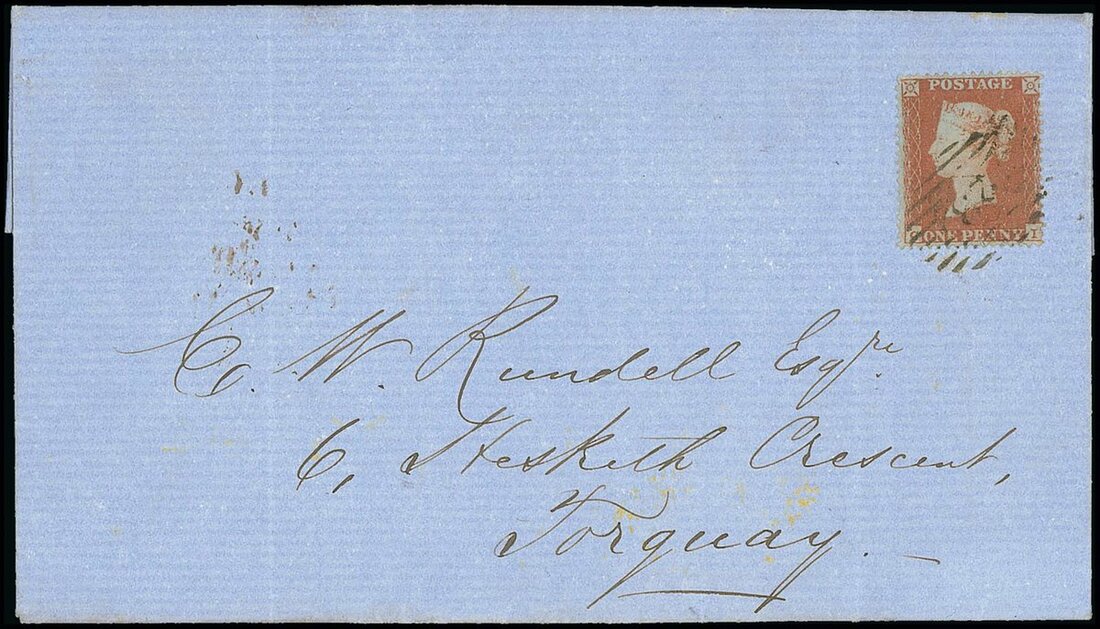 POSTAGE
ONE PENNY
C. W. Rundell Esqre.
6, Hesketh Crescent,
Torquay.